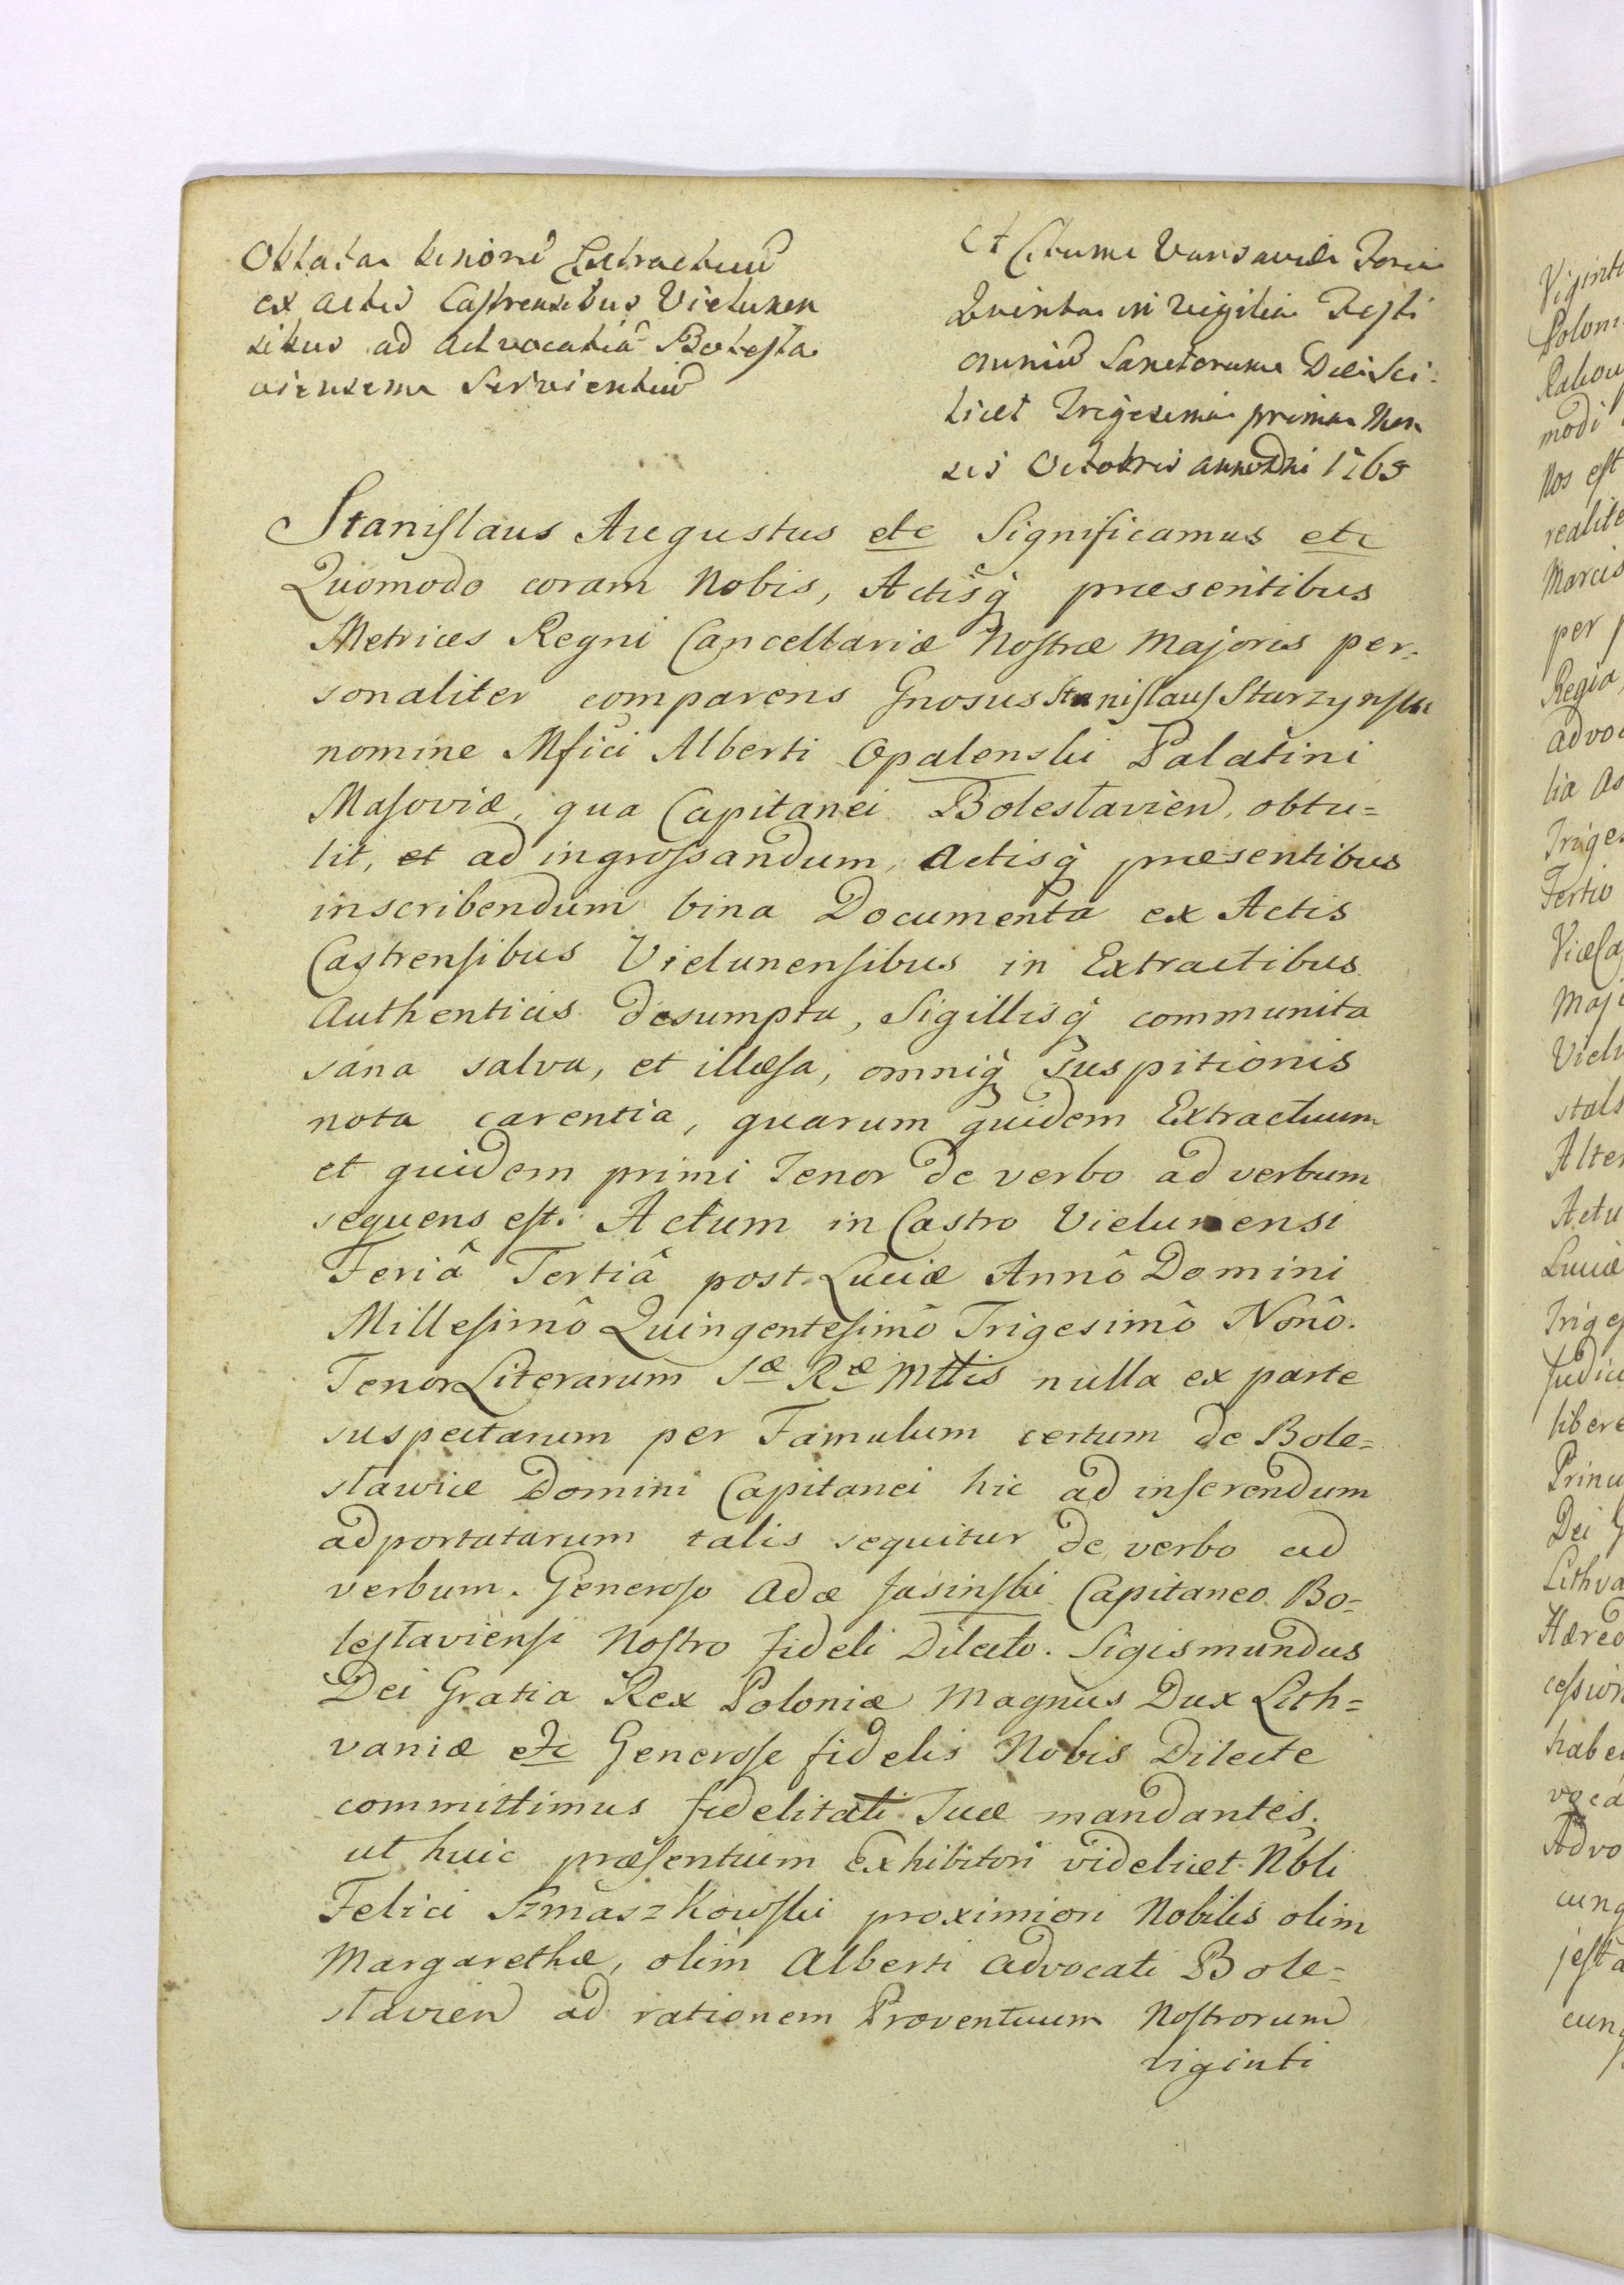 Oblata binorũ Extractuũ
ex actis Castrensibus Vielunen
sibus ad advocatiã Bolesla
viensem Servientiũ
Actum Varsaviæ Feria
Quinta in vigilia Festi
omniũ Sanctorum Die Sci:
licet Trigesima prima Men
sis Octobris anno Dni 176
Stanislaus Augustus etc Significamus etc
Quomodo coram Nobis, Actisq̀ præsentibus
Metrices Regni Cancellariæ Nostræ Majoris per-
sonaliter comparens Gnosus Stanislaus Starzynski
nomine Mfici Alberti Opalenski Palatini
Masoviæ, qua Capitanei Boleslavien, obtu=
lit, et ad ingrossandum, Actisq̀ præsentibus
inscribendum bina Documenta ex Actis
Castrensibus Vielunensibus in Extractibus
Authenticis desumpta, Sigillisq̀ communita
sana salva, et illæsa, omniq̀ suspitionis
nota carentia, quarum quidem Extractuum
et quidem primi Tenor de verbo ad verbum
sequens est. Actum in Castro Vielunensi
Feriâ Tertiâ post Luciæ Annô Domini
Millesimô Quingentesimô Trigesimô Nonô.
Tenor Literarum Sæ Ræ Mttis nulla ex parte
suspectarum per Famulum certum de Bole=
slawice Domini Capitanei hic ad inserendum
adportatarum talis sequitur de verbo ad
verbum. Generoso Adæ Jasinski Capitaneo Bo-
leslaviensi Nostro fideli Dilecto. Sigismundus
Dei Gratia Rex Poloniæ Magnus Dux Lith=
vaniæ etc Generose fidelis Nobis Dilecte
committimus fidelitati Tuæ mandantes.
ut huic præsentium exhibitori videlicet Nbli
Felici Szmaszkowski proximiori Nobilis olim
Margarethæ, olim Alberti Advocati Bole-
slavien ad rationem Proventuum Nostrorum
viginti